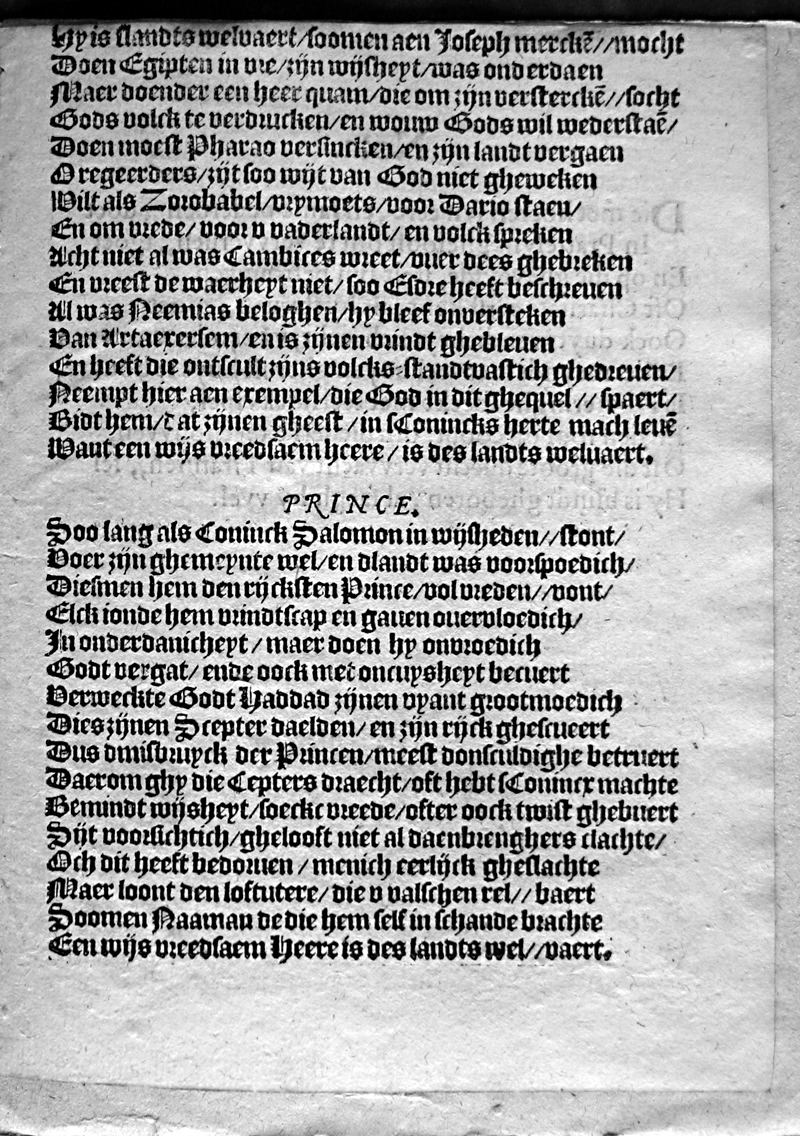 Hy is slandts welvaert/soomen aen Joseph merckẽ//mocht
Doen Egipten in vre/zijn wijsheyt/was onderdaen
Maer doender een heer quam/die om zijn versterckẽ//socht
Gods volck te verdrucken/en wouw Gods wil wederstaẽ/
Doen moest Pharao versincken/en zijn landt vergaen
O regeerders/zijt soo wijt van God niet gheweken
Wilt als Zorobabel/vrymoets/voor Dario staen/
En om vrede/voor v vaderlandt/en volck spreken
Acht niet al was Cambices wreet/vuer dees ghebreken
En vreest de waerheyt niet/soo Esdre heeft beschreuen
Al was Neemias beloghen/hy bleef onversteken
Van Artaexersem/en is zijnen vrindt ghebleuen
En heeft die ontscult zijns volcks-standtvastich ghedreuen/
Neempt hier aen exempel/die God in dit ghequel//spaert/
Bidt hem/dat zijnen gheest/in sConincks herte mach leuẽ
Want een wijs vreedsaem heere/is des landts weluaert.
PRINCE.
Soo lang als Coninck Salomon in wijsheden//stont/
Voer zijn ghemeynte wel/en dlandt was voorspoedich/
Diesmen hem den rijcksten Prince/vol vreden//vont/
Elck ionde hem vrindtscap en gauen ouervloedich/
In onderdanicheyt/maer doen hy onvroedich
Godt vergat/ende oock met oncuysheyt becuert
Verweckte Godt Haddad zijnen vyant grootmoedich
Dies zijnen Scepter daelden/en zijn rijck ghescueert
Dus dmisbruyck der Princen/meest donsculdighe betruert
Daerom ghy die Cepters draecht/oft hebt sConincx machte
Bemindt wijsheyt/soeckt vreede/ofter oock twist ghebuert
Sijt voorsichtich/ghelooft niet al daenbrenghers clachte/
Och dit heeft bedoruen/menich eerlijck gheslachte
Maer loont den loftutere/die v valschen rel//baert
Soomen Naaman dede die hem self in schande brachte
Een wijs vreedsaem Heere is des landts wel//vaert.